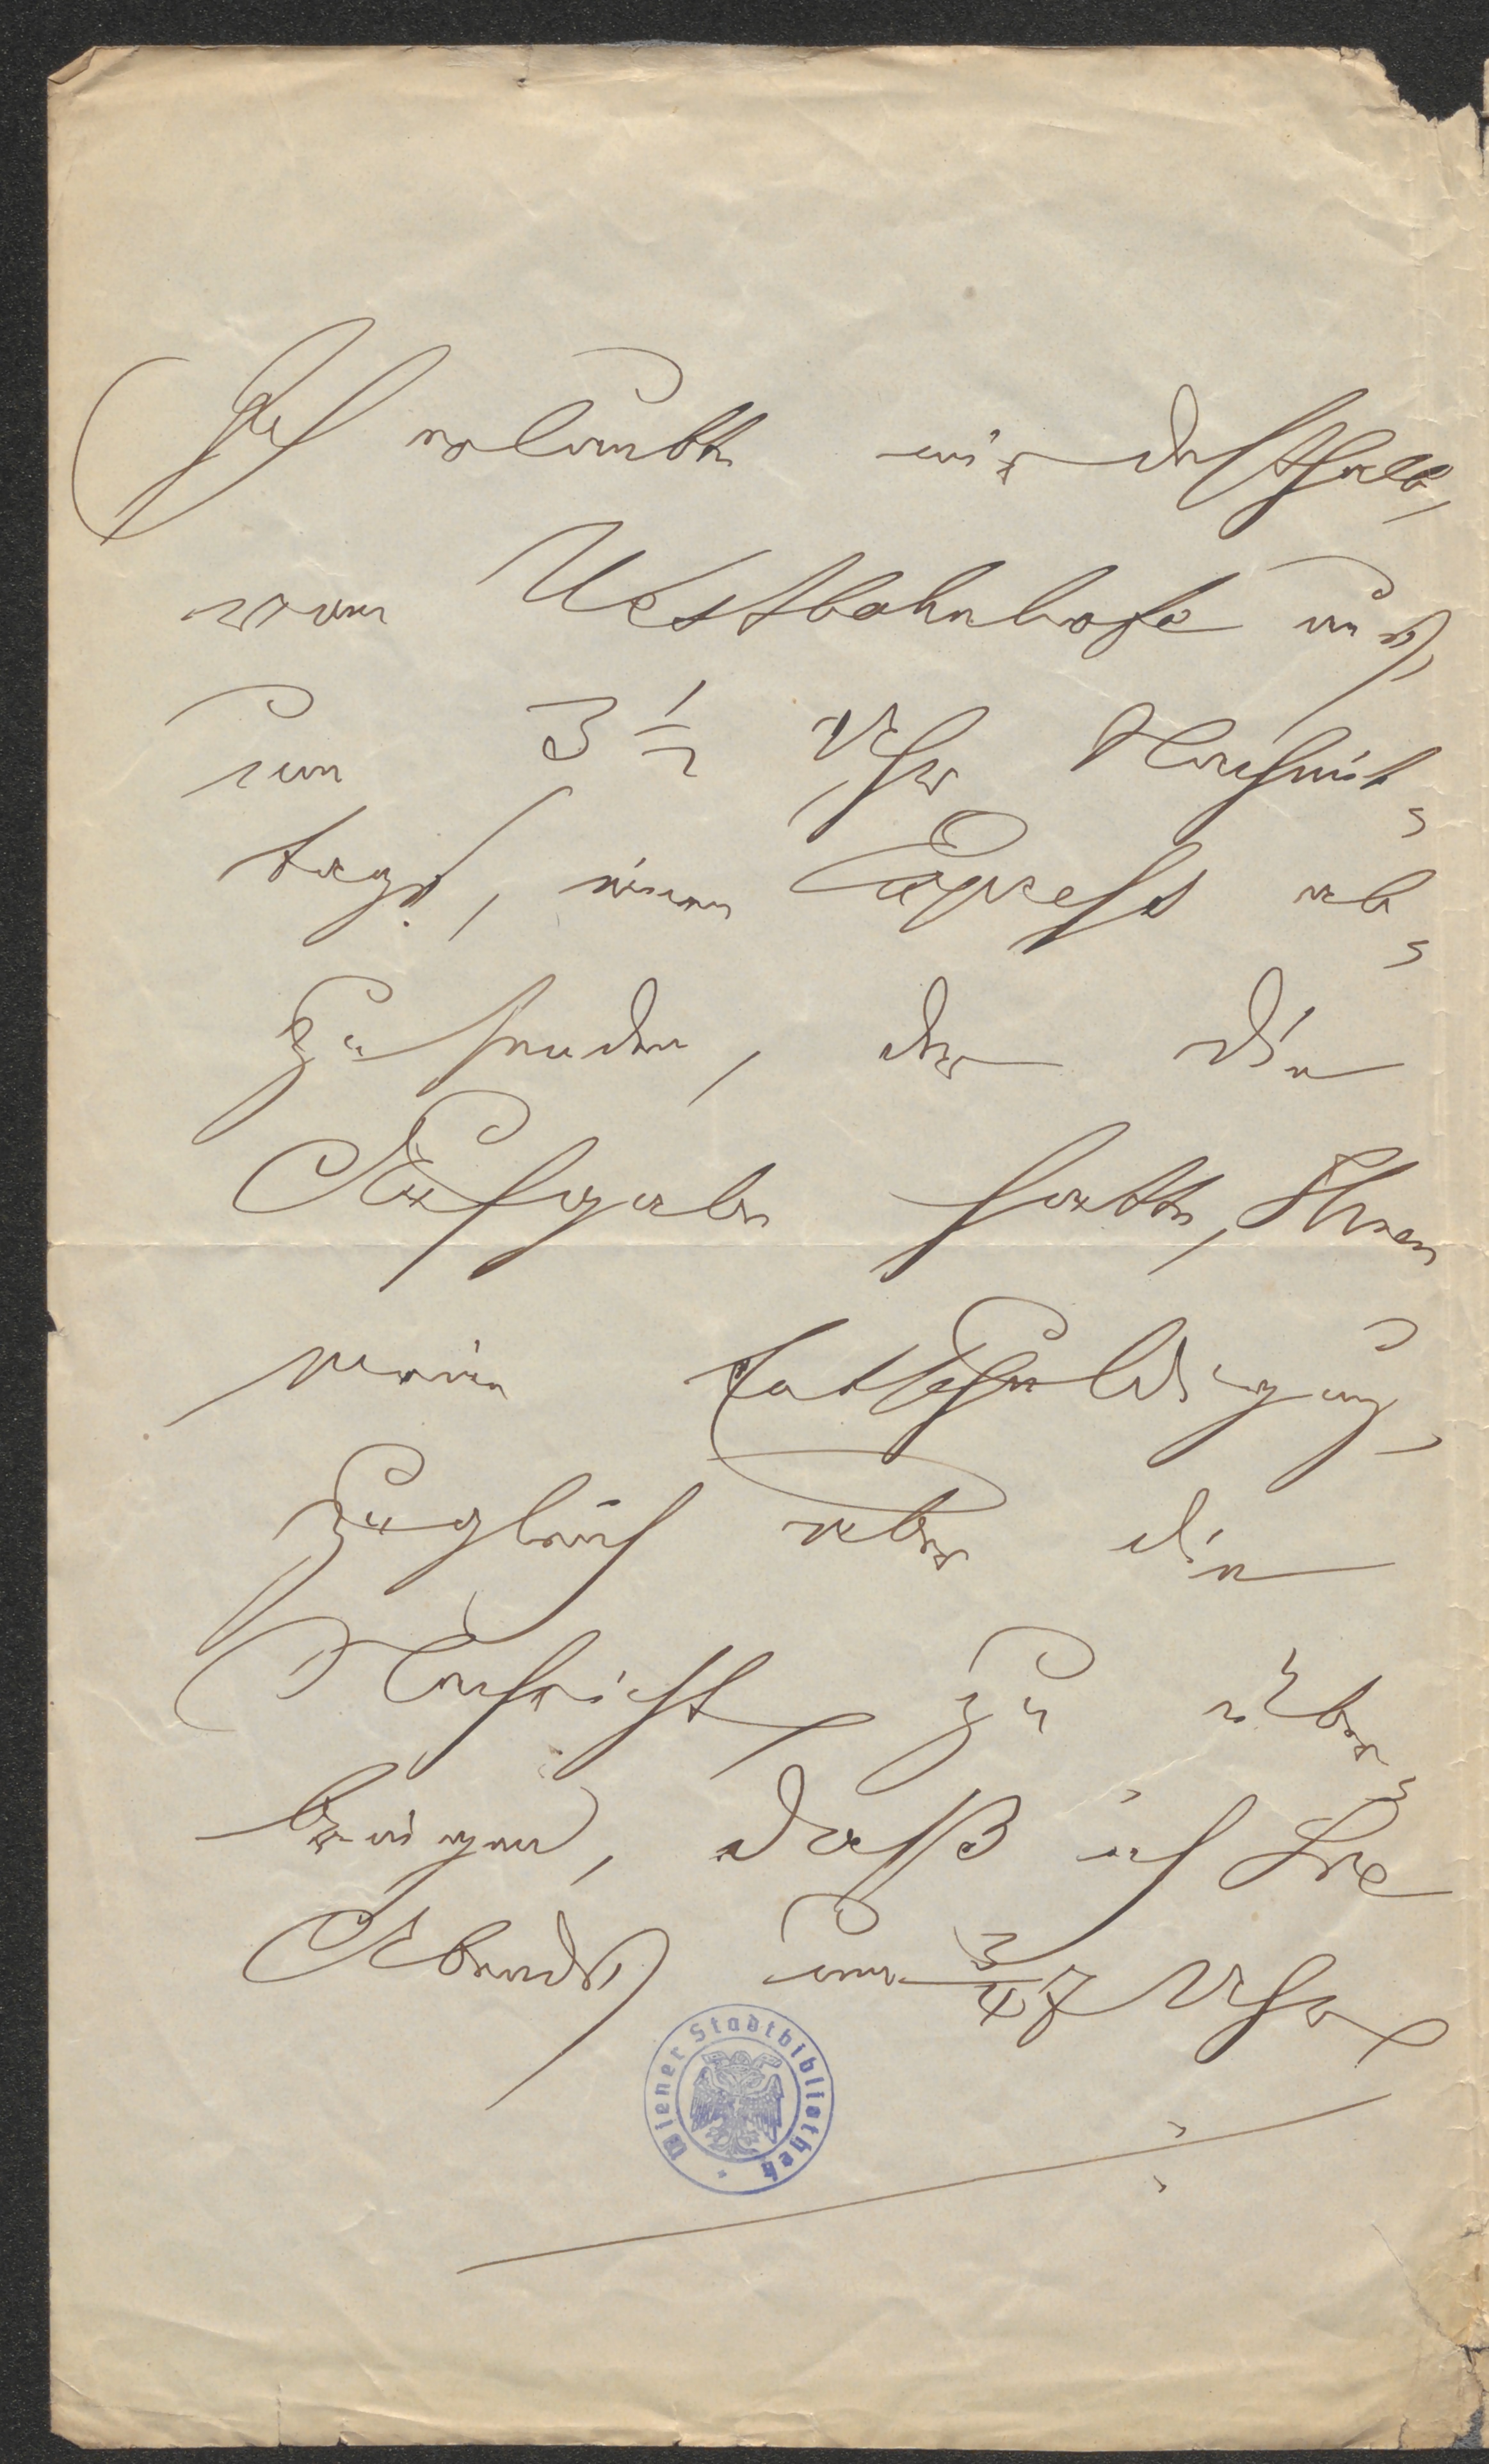 Ich erlaubte mir desthalb,
vom Westbahnhofe aus,
um 3 1/2 Uhr Nachmit-
tags, einen Expreß ab-
zusenden, der die
Aufgabe hatte, Ihnen
meine Entschuldigung,
zugleich aber die
Nachricht zu über-
bringen, daß ich Sie
Abends um 3/4 7 Uhr
Wiener Stadtbibliothek